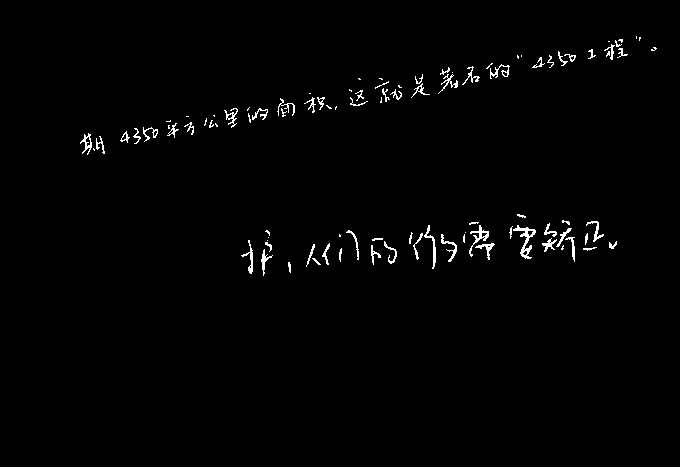 期4350平方公里的面积,这就是著名的"4350工程"。
护,人们的行为需要矫正。